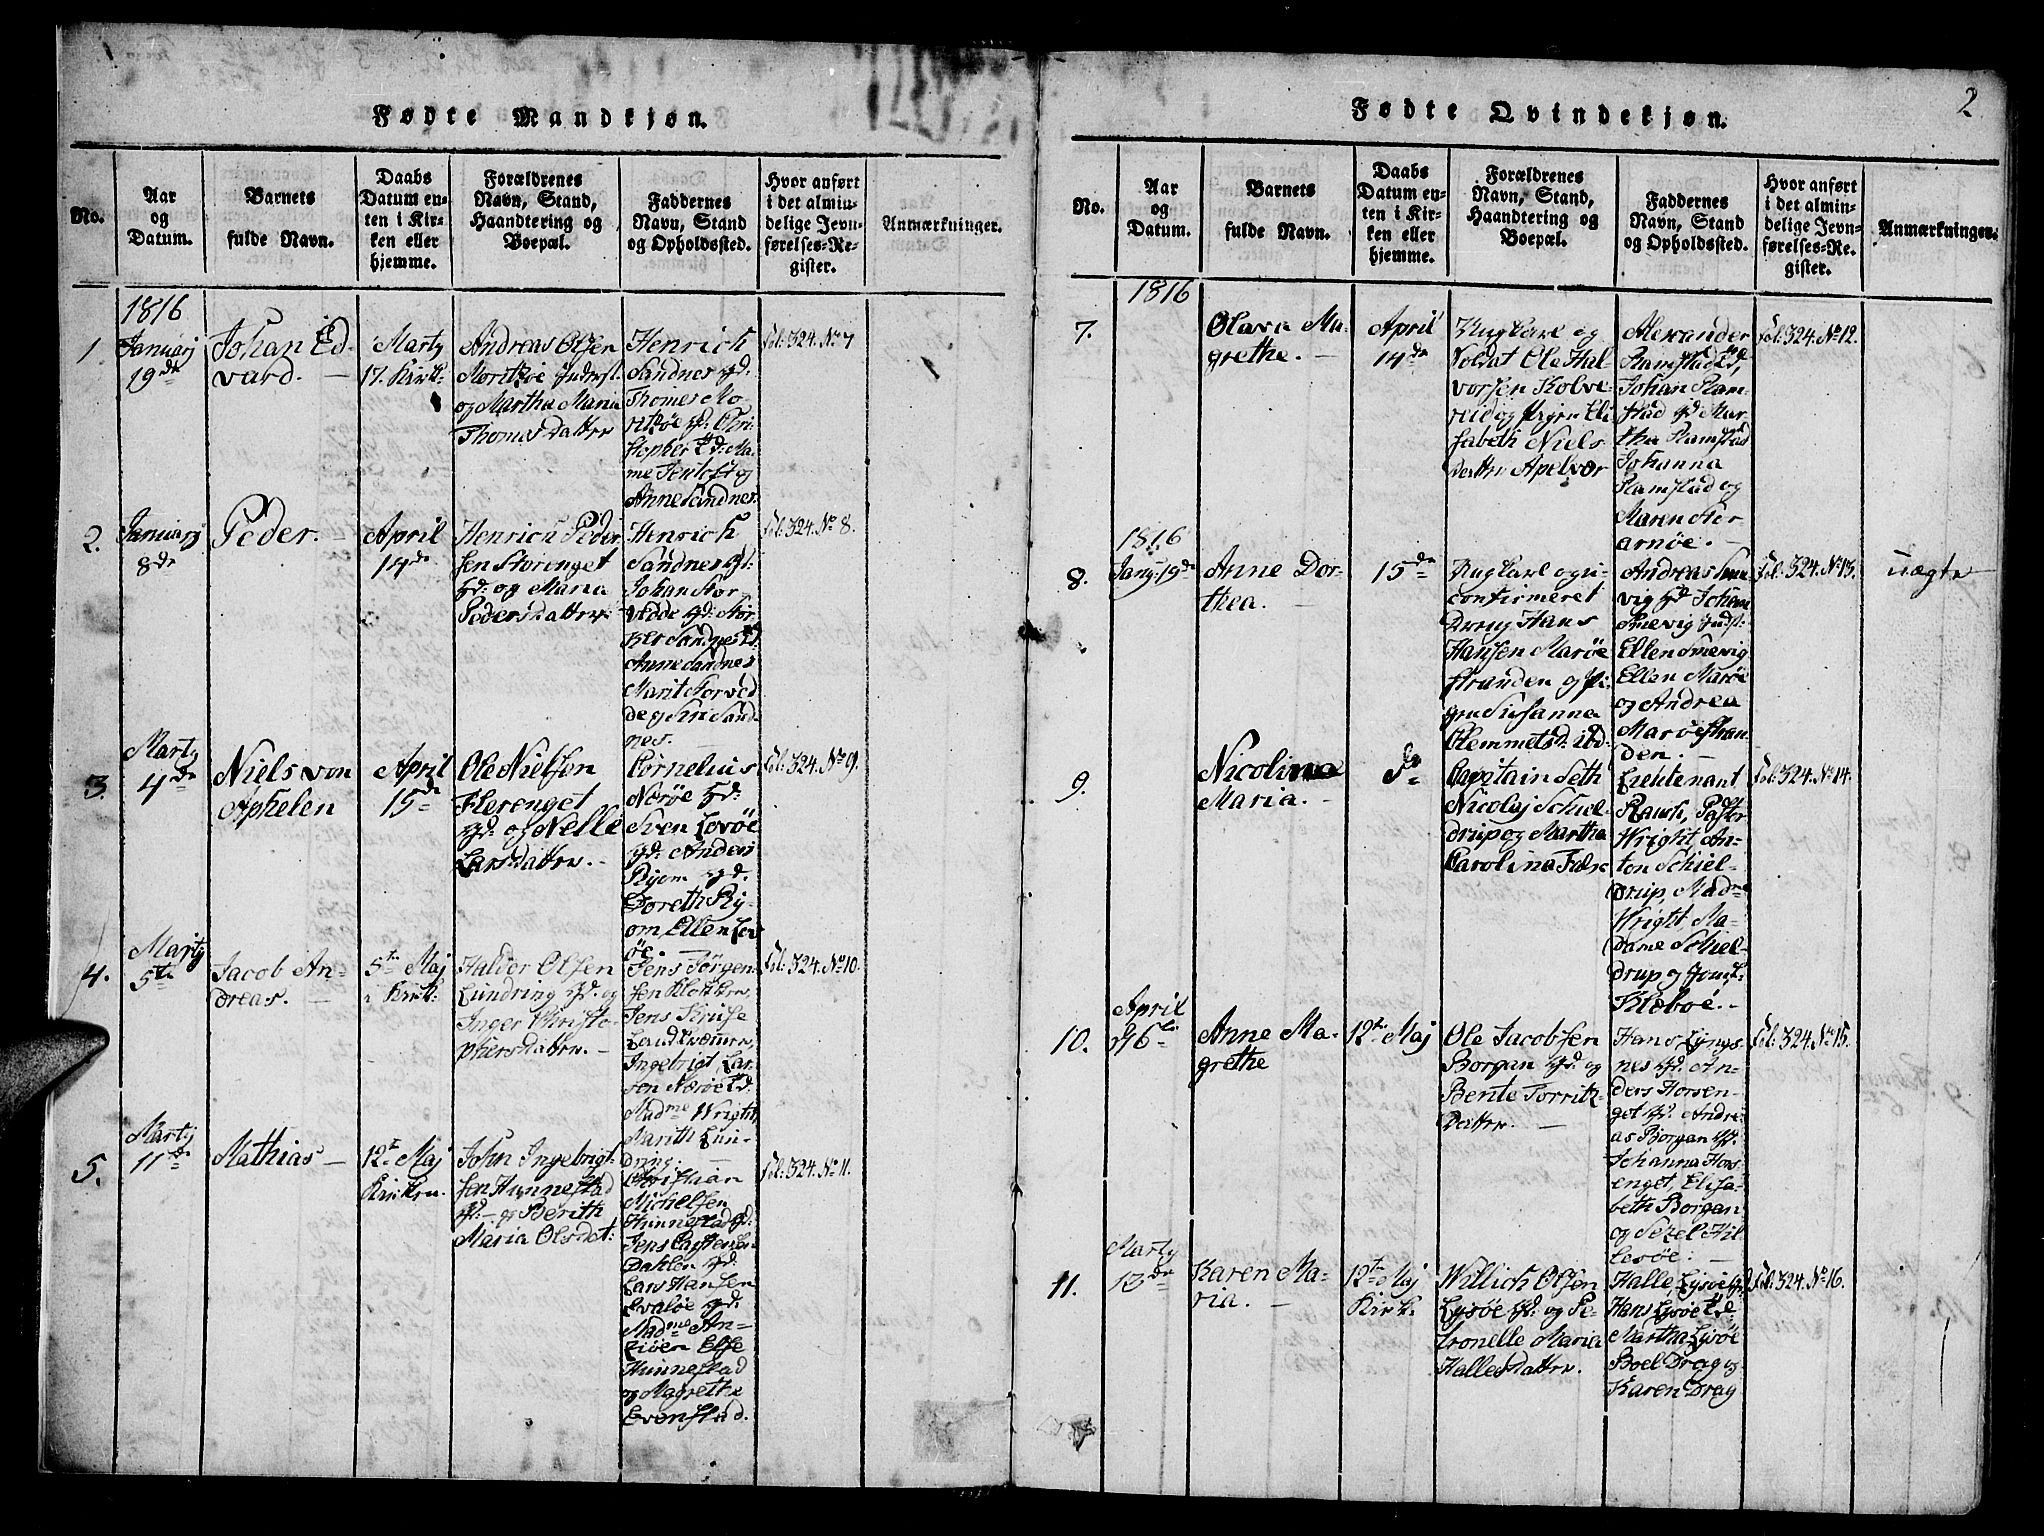 Fødte Mandkjøn.
No.
Aar
og
Datum.
Barnets
fulde Navn.
Daabs
Datum en-
ten i Kir-
ken eller
hjemme.
Forældrenes
Navn, Stand,
Haandtering og
Boepæl.
Faddernes
Navn, Stand
og Opholdssted.
Hvor anført
i det almin-
delige Jevn-
førelses-Re-
gister.
Anmærkninger.
1816
1.
Januarj
19de
Johan Ed-
vard. —
Martj
17. Kirk:
Andreas Olsen
og Martha Maria
Thomesdatter
Henrich
Sandnes gd:
Thomes Mo-
Chri-
stopher
Anne Sandnes
Fol: 324. No 7
2.
Januarj
8de
Peder. —
April
14de
Henrich Peder
sen Storenget
gd: og Maria
Pedersdatter
Henrich
Sandnes gd:
Johan Stor
vedde gd: Stor
ker Sandnes
Anne Sandnes
Marit Storved
de og Siri Sand
nes. —
Fol: 324. No 8.
3.
Martj
4de
Niels von
Aphelen
April
15de
Ole Nielsen
Flerenget
gd: og Nelle
Larsdatter. —
Cornelius
Nærøe gd:
Sven Lovøe
gd: Anders
Ryom gd:
Doreth Ry-
om, Ellen Lov
øe. —
Fol: 324. No 9.
4.
Martj
5te
Jacob An-
dreas. —
5te Maj
i Kirk:
Halder Olsen
Lundring gd: og
Inger Christo-
phersdatter. —
Jens Jørgen-
sen Klokker,
Jens Kruse
Landkræmer,
Ingebrigt Lar-
sen Nærøe
Madme Wright,
Marith Lun-
dring: —
Fol: 324. No 10.
5.
Martj
11de
Mathias —
12te Maj
Kirken.
John Ingebrigt-
sen Hunnestad
gd: — og Berith
Maria Olsdat:
Christian
Michelsen
Hunnestad gd:
Dahlen gd:
Lars Hansen
Evaløe gd:
Madme An-
Else
Hunnestad
og Magrethe
Evenstad.
Fol: 324. No 11.
Fødte Qvindekjøn.
2
No.
Aar
og
Datum.
Barnets
fulde Navn.
Daabs
Datum en-
ten i Kir-
ken eller
hjemme.
Forældrenes
Navn, Stand,
Haandtering og
Boepæl.
Faddernes
Navn, Stand
og Opholdssted.
Hvor anført
i det almin-
delige Jevn-
førelses-Re-
gister.
Anmærkninger.
1816
7.
Olava Ma-
grethe. —
April
14de
Ungkarl og
Soldat Ole Hal-
vorsen Kolve-
reid og Pigen Eli
sabeth Niels
datter Apelvær
Alexander
Ramstad
Johan Ram-
stad gd: Mar-
tha Ramstad
Johanna
Ramstad og
Maren Hor
arnøe. —
Fol: 324. No 12.
1816
8.
Janj: 19de
Anne Dor-
thea. —
15de
Ungkarl og u-
confirmeret
Dreng Hans
Hansen Marøe
stranden og Pi-
gen Susanna
Andreas Smin-
vig gd: Johan
Ellen Marøe
og Andrea
Marøestran
den. —
Fol: 324. No 13.
uægte
9.
Nicolina
Maria. —
do
Capitain Seth
Nicolaj Schiel-
drup og Martha
Carolina Fære
Lieutenant
Rauch, Pastor
Wright, An-
ton Schiel-
drup, Madme
Wright Ma-
dame Schiel-
drup og Jomf:
Klæboe. —
Fol: 324. No 14.
April
10.
Anne Ma-
grethe
12te Maj
Ole Jacobsen
Borgan gd: og
Bente Torris-
datter. —
Hans Lyngs-
nes gd: An-
ders Horsen-
get gd: Andre-
as Borgan gd:
Johanna Hors
enget, Elisa-
beth Borgan
og Sezel Hil
lesøe: —
Fol: 324. No 15.
Martj
11.
13de
Karen Ma-
ria. —
12te Maj
Kirk:
Willich Olsen
Lysøe gd: og Pe-
tronelle Maria
Hallesdatter.
Halle Lysøe gd:
Hans Lysøe
Martha Lysøe
Boel Drag og
Karen Drag
Fol: 324. No 16.